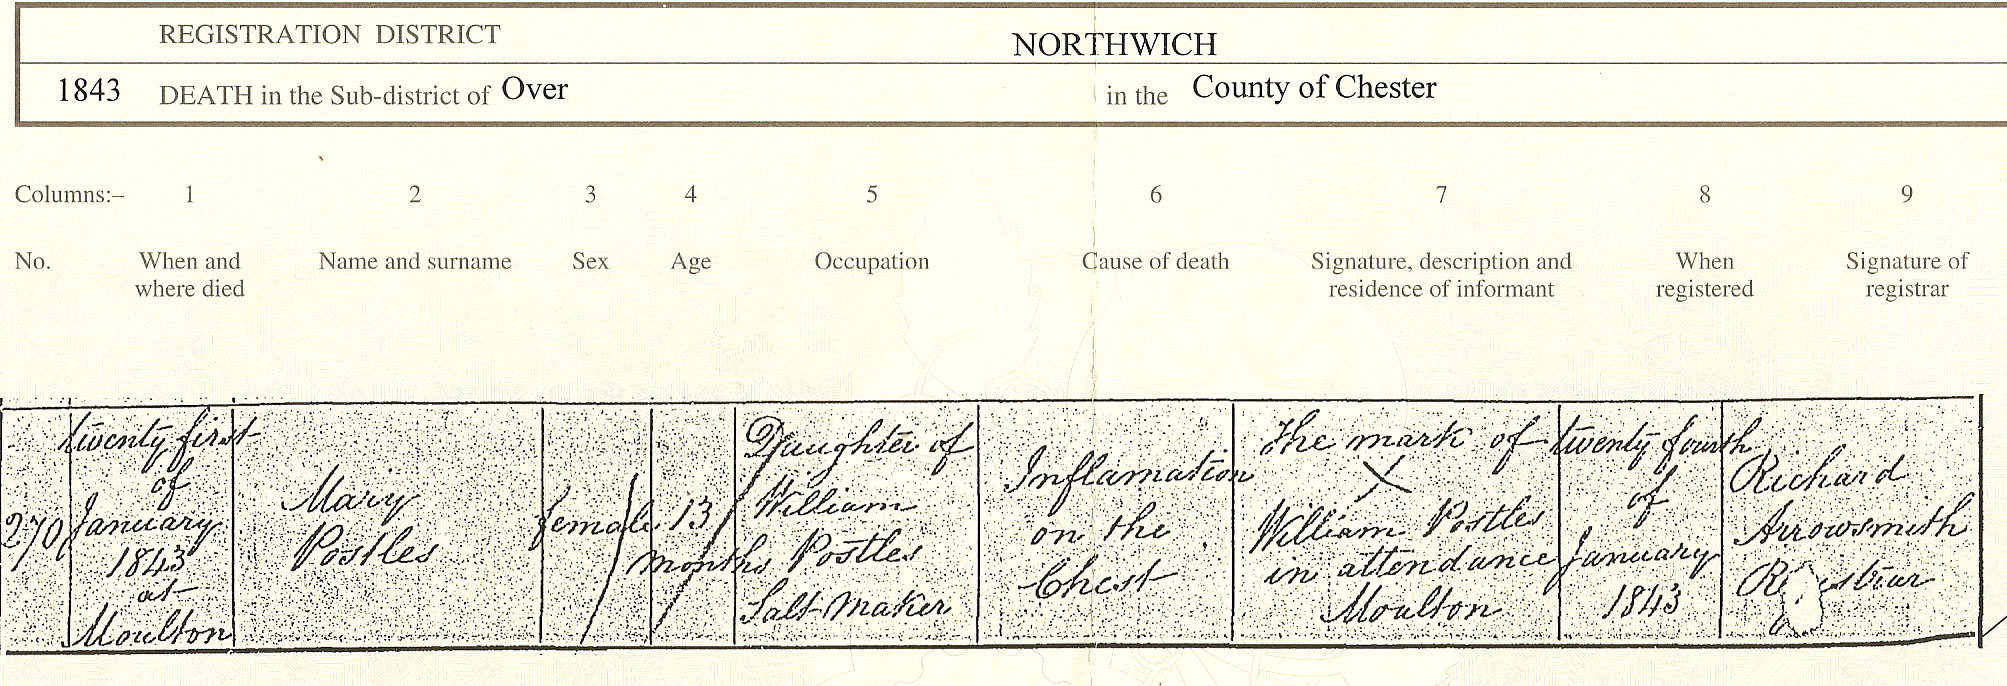 REGISTRATION DISTRICT
NORTHWICH
1843 DEATH in the Sub-district of Over in the County of Chester
Columns:– 1 2 3 4 5 6 7 8 9
No.
When and
where died
Name and surname
Sex
Age
Occupation
Cause of death
Signature, description and
residence of informant
When
registered
Signature of
registrar
270
twenty first
of
January
1843
at
Moulton
Mary
Postles
female
13
months
Daughter of
William
Postles
Salt Maker
Inflamation
on the
Chest
The mark of
X
William Postles
in attendance
Moulton
twenty fourth
of
January
1843
Richard
Arrowsmith